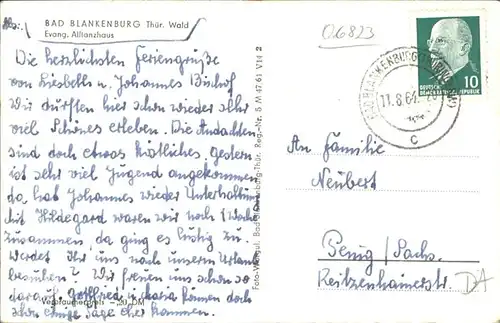 Abs.:
BAD BLANKENBURG Thür. Wald
Evang. Allianzhaus
Die herzlichsten Feriengrüße
von Liesbeth u. Johannes Bischof
Wir durften hier schon wieder sehr
viel Schönes erleben. Die Andachten
sind doch etwas Köstliches. Gestern
ist sehr viel Jugend angekommen
da hat Johannes wieder Unterhaltung
Mit Hildegard waren wir noch 1 Woche
zusammen, da ging es lustig zu.
Werdet Ihr uns nach unserm Urlaub
besuchen? Wir freuen uns schon so
darauf. Gottfried u. können doch
schon einige Tage eher kommen.
Verbraucherpreis –,20 DM
Bad Blankenburg-Thür. Reg.-Nr. S M 47 61 V 14 2
06823
DEUTSCHE
DEMOKRATISCHE REPUBLIK
10
BAD BLANKENBURG
11.8.64
c
An Familie
Neubert
Penig/Sachs.
Reitzenhainerstr.
DA